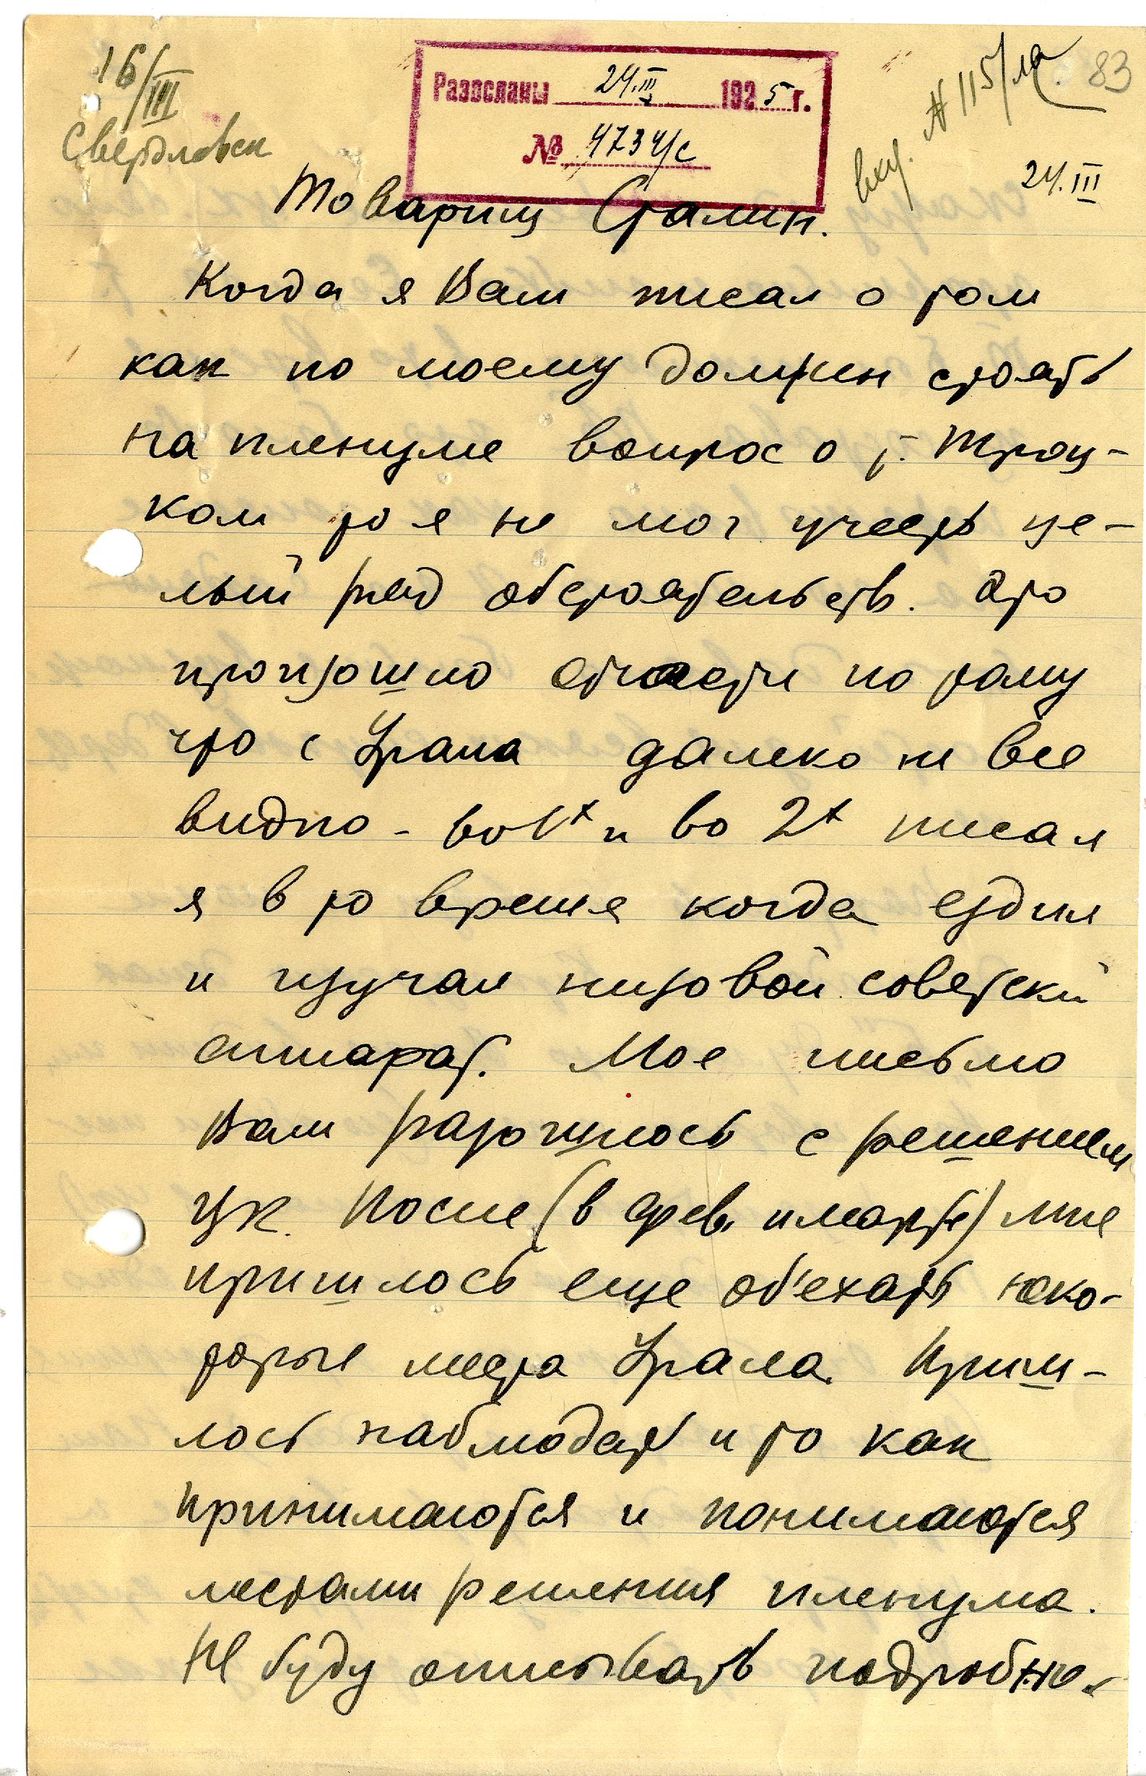 16/III
Свердловск
Разосланы 24.III 1925 г.
№ 4734/с
вх. № 115/
83
24.III
Товарищ Сталин.
Когда я Вам писал о том
как по моему должен стоять
на пленуме вопрос о т. Троц-
ком то я не мог учесть це-
лый ряд обстоятельств. Это
произошло отчасти по тому
что с Урала далеко не все
видно - во 1х и во 2х писал
я в то время когда ездил
и изучал низовой советский
аппарат. Мое письмо
Вам разошлось с решением
ЦК. После (в фев. и марте) мне
пришлось еще об'ехать неко-
торые места Урала. Приш-
лось наблюдать и то как
принимаются и понимаются
местами решения пленума.
Не буду описывать подробно